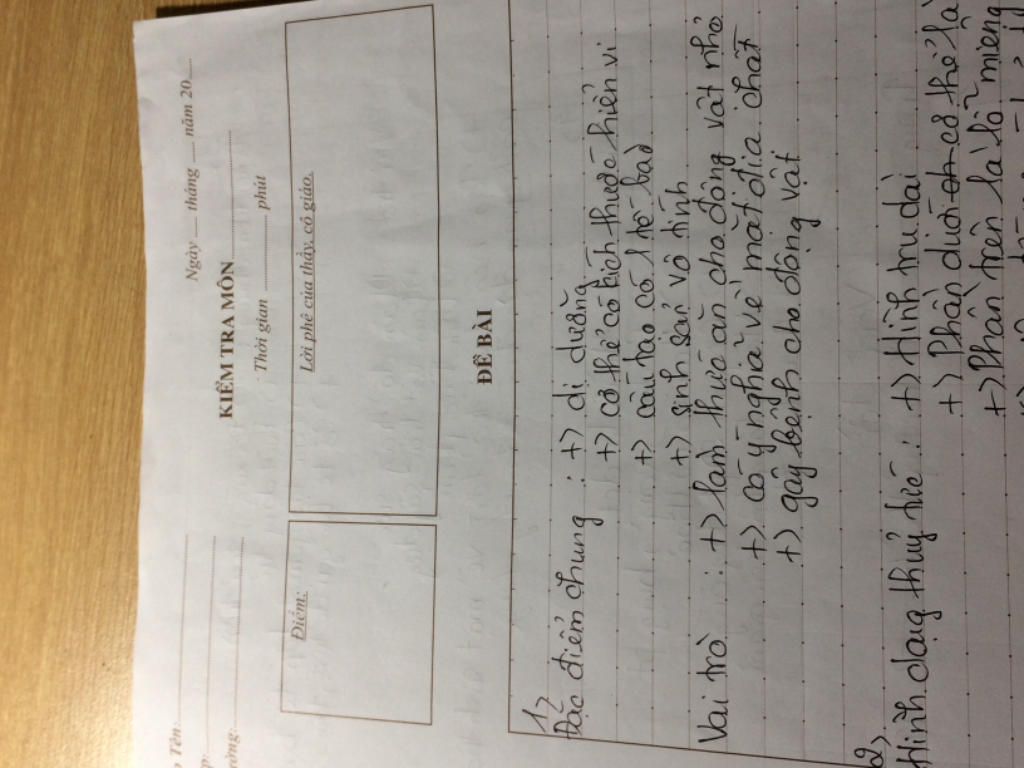 Tên:
Ngày tháng năm 20
KIỂM TRA MÔN
Thời gian phút
Điểm:
Lời phê của thầy, cô giáo
ĐỀ BÀI
1)
Đặc điểm chung : +) dị dưỡng
+) có thể có kích thước hiển vi
+) cấu tạo có 1 tế bào
+) sinh sản vô tính
Vai trò : +) làm thức ăn cho động vật nhỏ
+) có ý nghĩa về mặt địa chất
+) gây bệnh cho động vật
2)
Hình dạng thuỷ tức : +) Hình trụ dài
+) Phần dưới có thể là
+) Phần trên là lỗ miệng